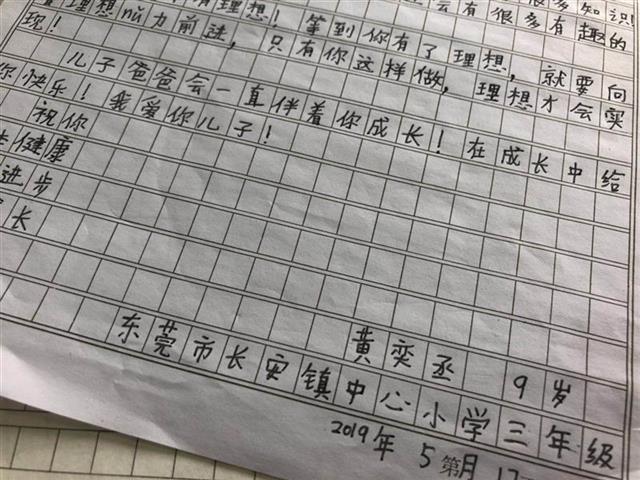 很多知识
会有很多有趣的
有理想！等到你有了理想，就要向
理想努力前进，只有你这样做，理想才会实
现！
儿子爸爸会一直伴着你成长！在成长中给
你快乐！我爱你儿子！
祝你
健康
进步
长
黄奕丞 9岁
东莞市长安镇中心小学三年级
2019年5月17
第